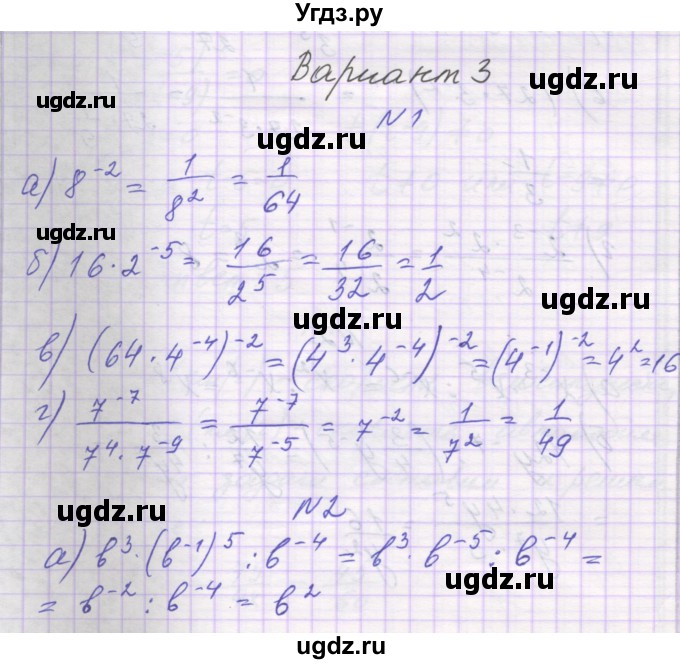 Угдз.ру
Вариант 3
ugdz.ru
ugdz.ru
N1
ugdz.ru
а) 8⁻² = 1/8² = 1/64
ugdz.ru
б) 16 · 2⁻⁵ = 16/2⁵ = 16/32 = 1/2
ugdz.ru
ugdz.ru
в) (64 · 4⁻⁴)⁻² = (4³ · 4⁻⁴)⁻² = (4⁻¹)⁻² = 4² = 16
ugdz.ru
г) 7⁻⁷/7⁴ · 7⁻⁹ = 7⁻⁷/7⁻⁵ = 7⁻² = 1/7² = 1/49
ugdz.ru
ugdz.ru
N2
ugdz.ru
а) b³ · (b⁻¹)⁵ : b⁻⁴ = b³ · b⁻⁵ : b⁻⁴ =
ugdz.ru
= b⁻² : b⁻⁴ = b²
ugdz.ru
ugdz.ru